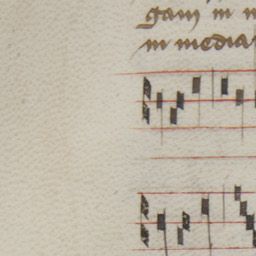 gam in
in media